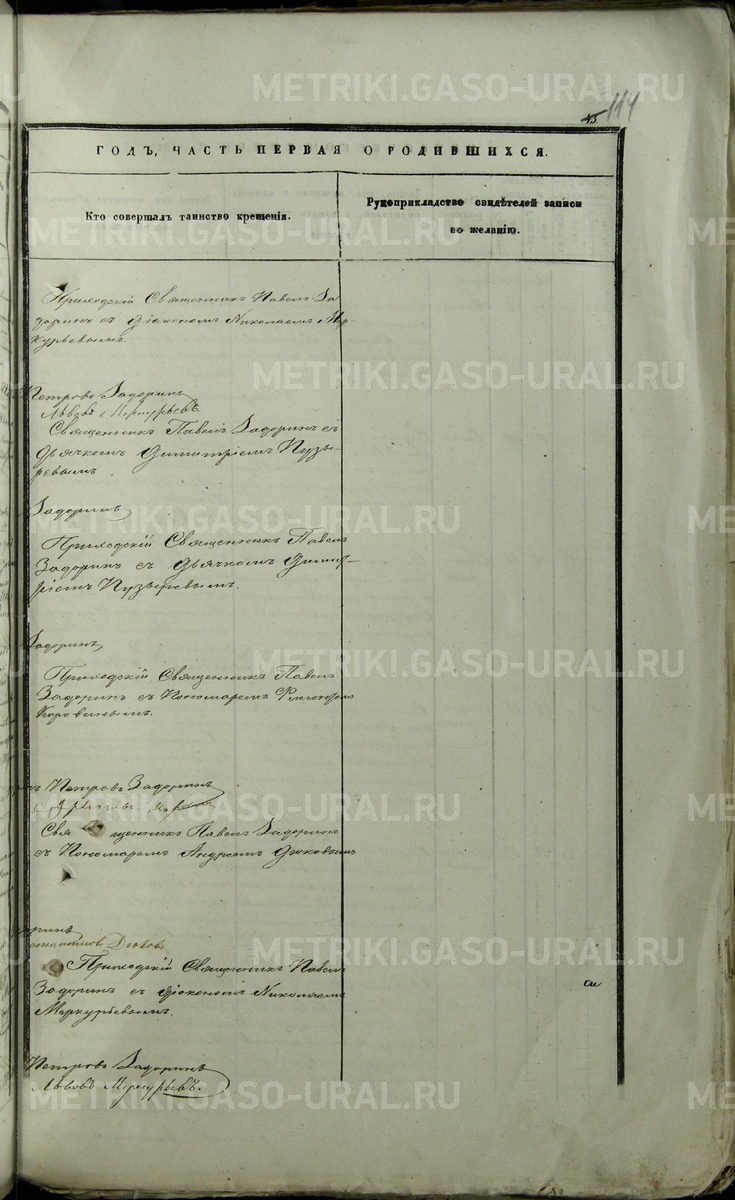 METRIKI.GASO-URAL.RU
114
ГОДЪ, ЧАСТЬ ПЕРВАЯ О РОДИВШИХСЯ.
Кто совершалъ таинство крещенія.
Рукоприкладство свидѣтелей записи
по желанію.
Приходскій Священникъ Павелъ За
доринъ съ Діакономъ Николаемъ Мер-
курьевымъ
Петровъ Задоринъ
Львовъ Меркурьевъ.
Священникъ Павелъ Задоринъ съ
Дьячкомъ Димитріемъ Пузы-
ревымъ.
Задоринъ
Приходскій Священникъ Павелъ
Задоринъ съ Дьячкомъ Димит-
ріемъ Пузыревымъ.
Задоринъ
Приходскій Священникъ Павелъ
Задоринъ съ Пономаремъ
Коровинымъ.
Петровъ Задоринъ
Священникъ Павелъ Задоринъ
съ Пономаремъ Андреемъ
доринъ
Приходскій Священникъ Павелъ
Задоринъ съ Діакономъ Николаемъ
Меркурьевымъ.
Петровъ Задоринъ
Львовъ Меркурьевъ.